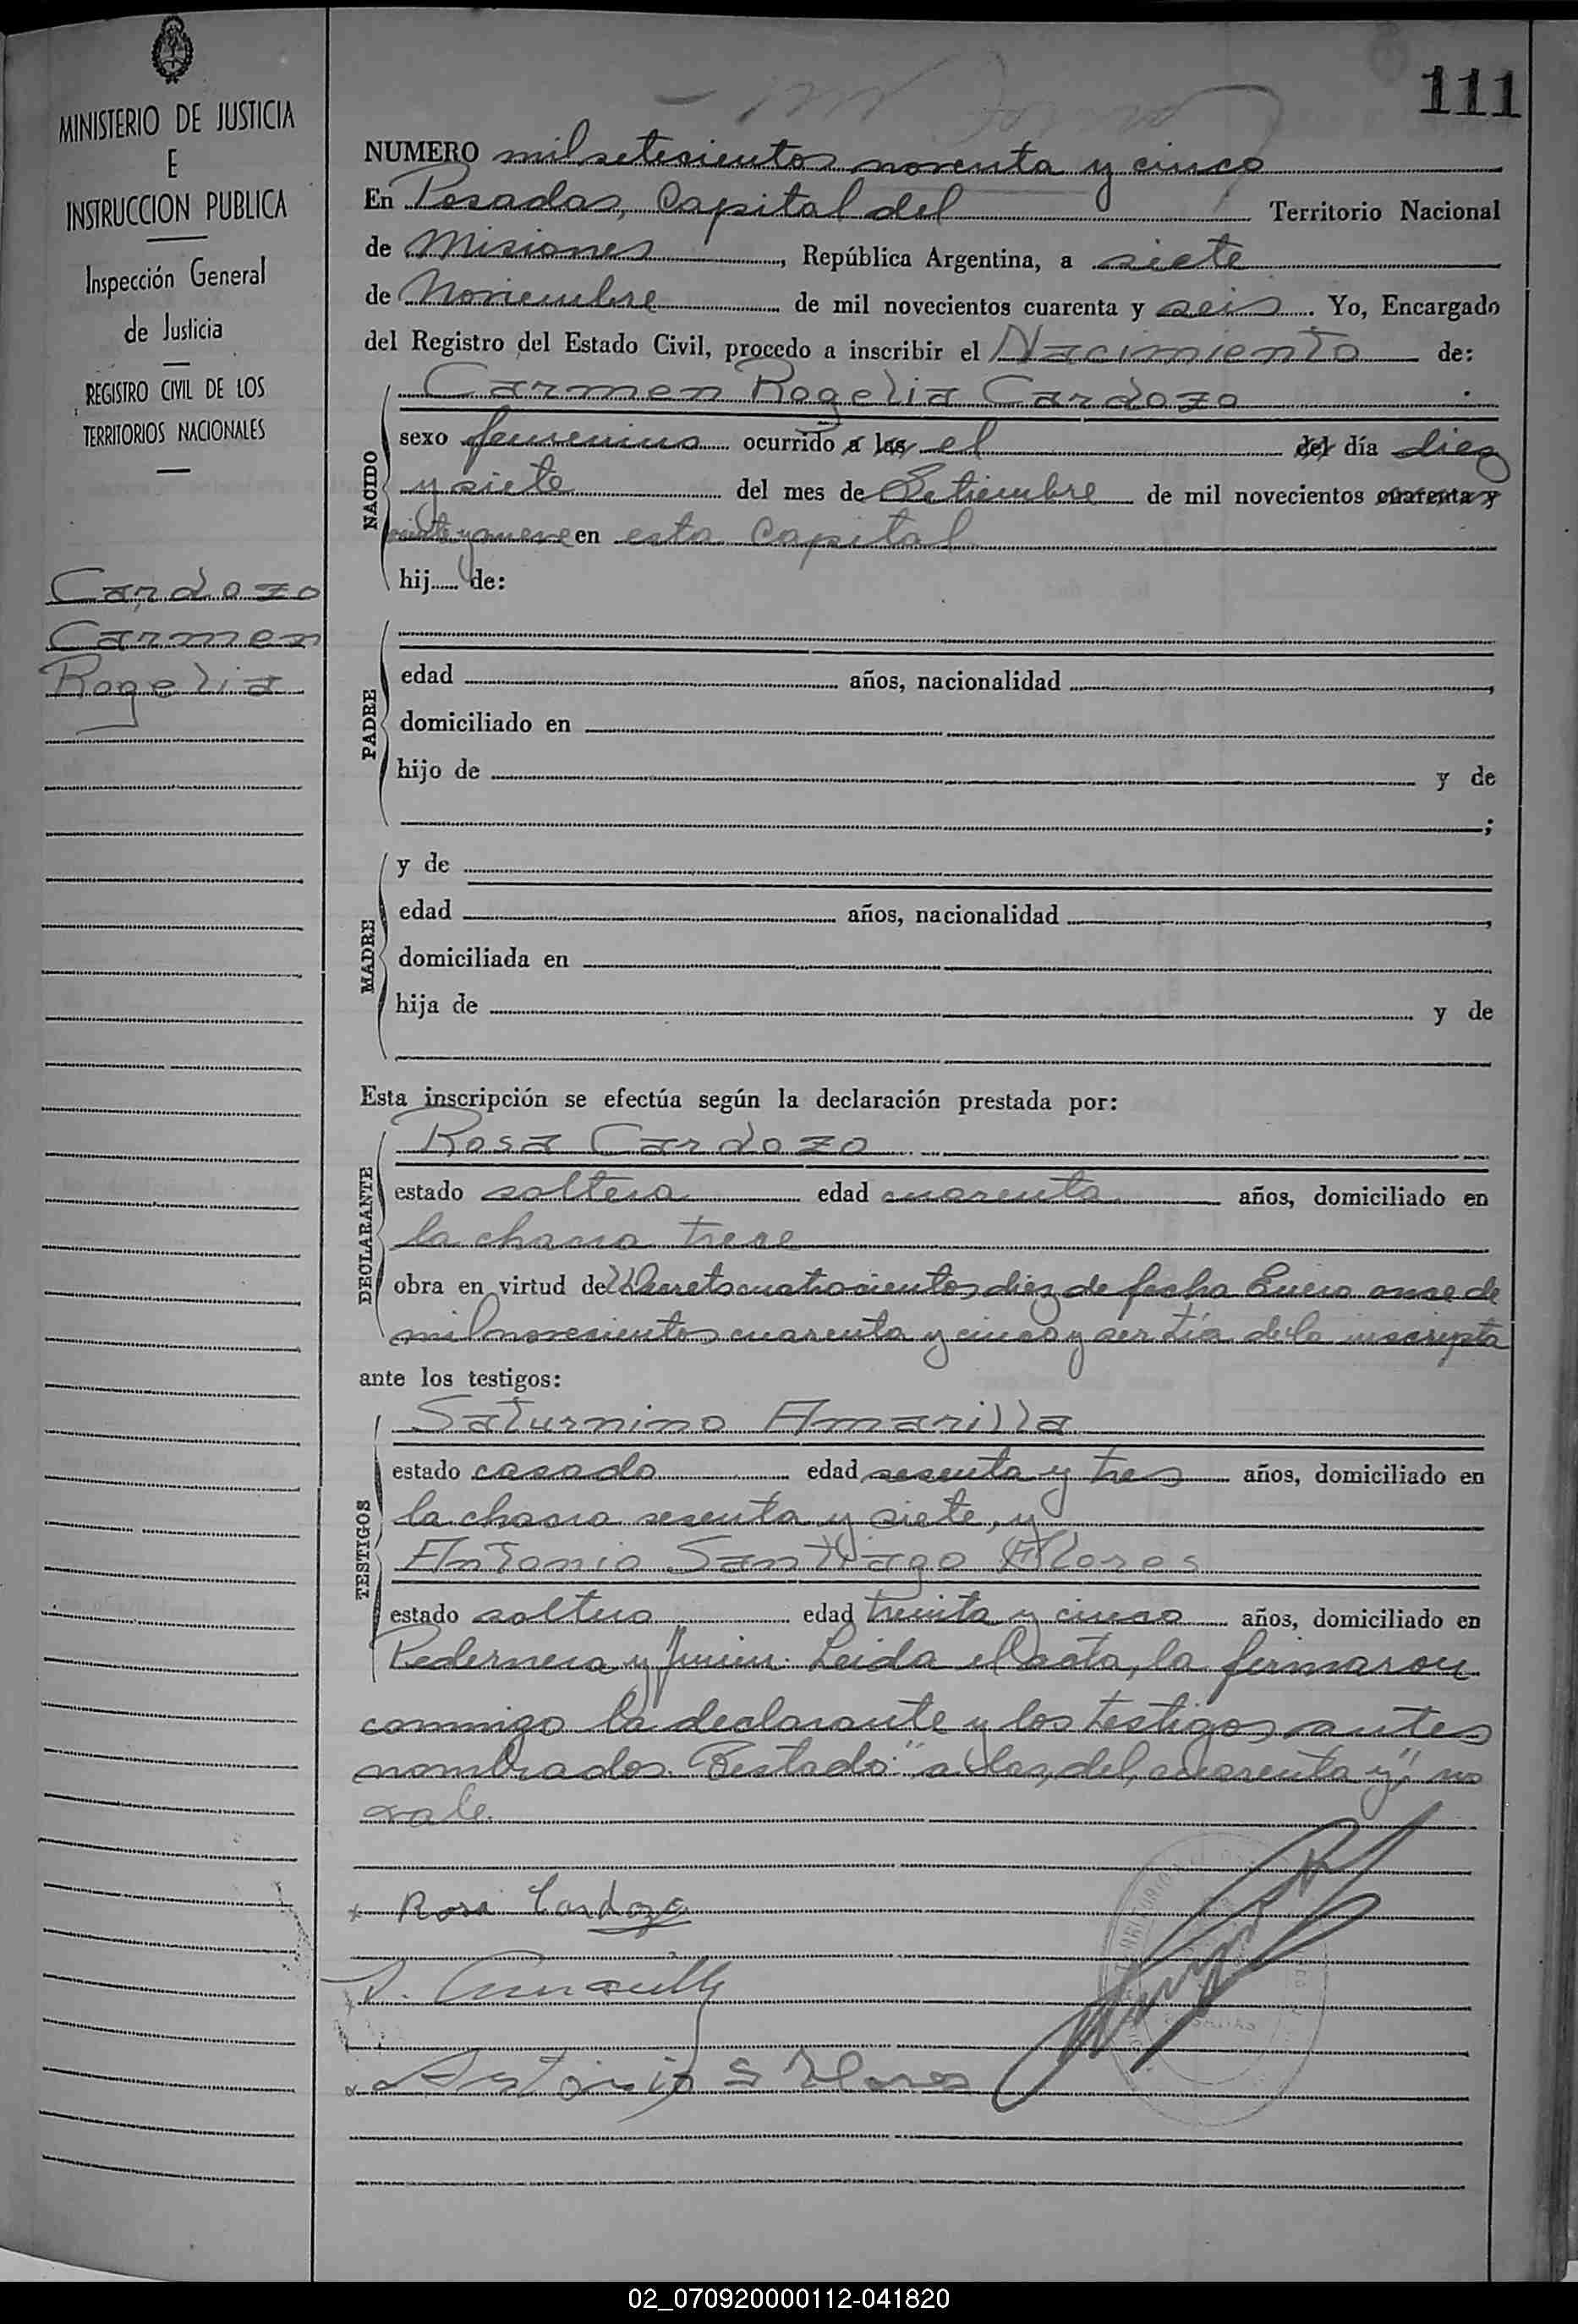 MINISTERIO DE JUSTICIA
E
INSTRUCCION PUBLICA
Inspección General
de Justicia
REGISTRO CIVIL DE LOS
TERRITORIOS NACIONALES
Cardozo
Carmen
Rogelia
111
NUMERO mil setecientos noventa y cinco
En Posadas, Capital del Territorio Nacional
de Misiones, República Argentina, a siete
de Noviembre de mil novecientos cuarenta y seis. Yo, Encargado
del Registro del Estado Civil, procedo a inscribir el Nacimiento de:
NACIDO
Carmen Rogelia Cardozo
sexo femenino ocurrido a las el del día diez
y siete del mes de Setiembre de mil novecientos cuarenta y
veinte y nueve en esta Capital
hij...... de:
PADRE
edad años, nacionalidad ,
domiciliado en
hijo de y de
;
MADRE
y de
edad años, nacionalidad ,
domiciliada en
hija de y de
Esta inscripción se efectúa según la declaración prestada por:
DECLARANTE
Rosa Cardozo
estado soltera edad cuarenta años, domiciliado en
la chacra trece
obra en virtud del Decreto cuatrocientos diez de fecha Enero once de
mil novecientos cuarenta y cinco y ser tía de la inscripta
ante los testigos:
TESTIGOS
Saturnino Amarilla
estado casado edad sesenta y tres años, domiciliado en
la chacra sesenta y siete, y
Antonio Santiago Flores
estado soltero edad treinta y cinco años, domiciliado en
Pedernera y Junin. Leida el acta, la firmaron
conmigo la declarante y los testigos antes
nombrados. Testado: "a las, del, cuarenta y" no
vale.
x Rosa Cardozo
S. Amarilla
Antonio S Flores
02_070920000112-041820